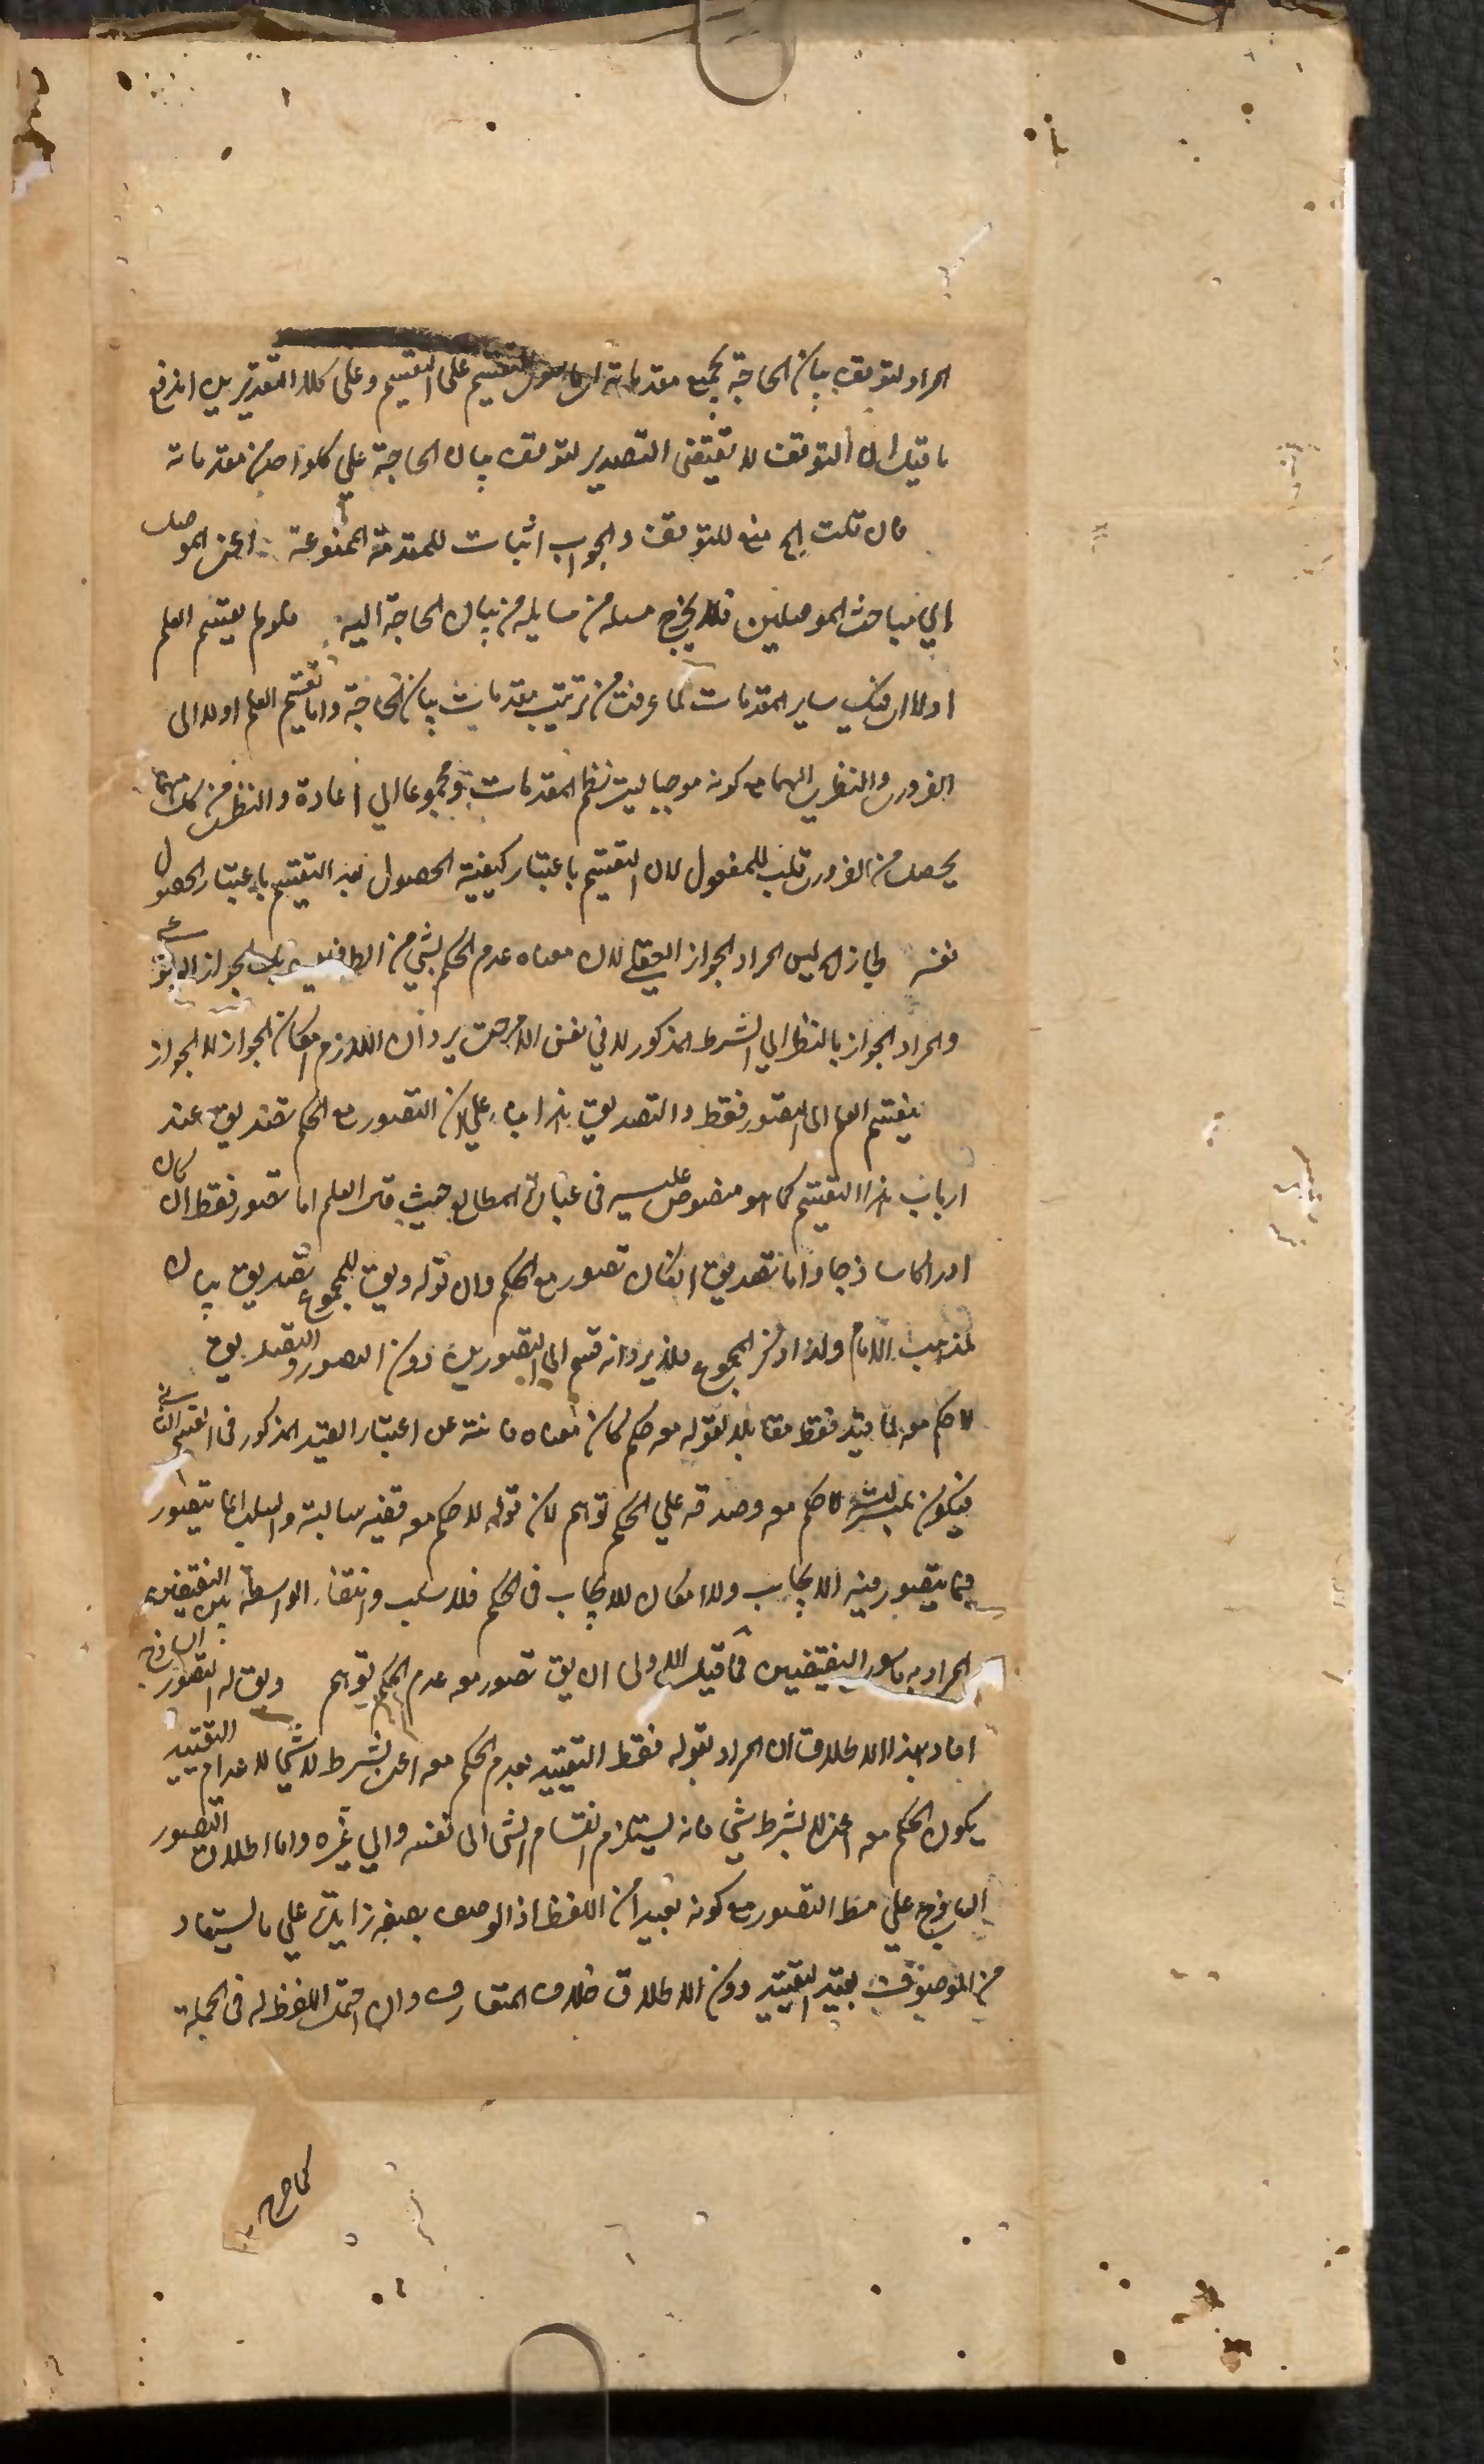 المراد بتوقف بيان الحاجة بجميع مقدماته التقسيم على التقسيم وعلى كلا التقديرين اندفع
ما قيل ان التوقف لا يقتضى التصدير لتوقف بيان الحاجة على كل واحد من مقدماته
فان قلت الخ منع للتوقف والجواب اثبات للمقدمة الممنوعة اعنى الموصل
الى مباحث الموصلين فلا يخرج مسئلة من مسايله من بيان الحاجة اليه فلو لم يقسم العلم
اولا سائر المقدمات لما عرفت من ترتيب مقدمات بيان الحاجة واما تقسيم العلم اولا الى
الضرورى والنظرى مع كونه موجبا لنظم المقدمات ومحوجا الى اعادة والنظرى من كل منهما
يحصل من الضرورى قلب للمعقول لان التقسيم باعتبار كيفية الحصول بعد التقسيم باعتبار الحصول
نفسه لجاز الخ ليس المراد الجواز العقلى لان معناه عدم الحكم بشئ من الطرفين بل الجواز
والمراد الجواز بالنظر الى الشرط المذكور لا فى نفس الامر حتى يرد ان اللازم امكان الجواز لا الجواز
ينقسم العلم الى التصور فقط والتصديق هذا بناء على ان التصور مع الحكم تصديق عند
ارباب هذا التقسيم كما هو منصوص عليه فى عبارة المطالع حيث قال العلم اما تصور فقط ان كان
ادراكا ساذجا واما تصديق ان كان تصور مع الحكم وان قوله ويق للمجموع تصديق بيان
لمذهب الامام ولذا ذكر المجموع فلا يرد انه قسم الى التصورين دون التصور والتصديق
لا حكم معه لما قيد فقط مقابلا لقوله معه حكم كان معناه فانته عن اعتبار القيد المذكور فى القسم الثانى
فيكون لا حكم معه وصدقه على الحكم توهم لان قوله لا حكم معه قضية سالبة والسلب انما يتصور
فيما يتصور فيه الايجاب ولا امكان للايجاب فى الحكم فلا سلب وانتفاء الواسطة بين النقيضين
المراد به ما سوى النقيضين فما قيل الاولى ان يق تصور معه عدم الحكم توهم ويق له التصور الساذج
افاد بهذا الاطلاق ان المراد بقوله فقط التقييد بعدم الحكم معه اعنى بشرط لا شئ لا عدم التقييد
بكون الحكم معه اعنى لا بشرط شئ فانه يستلزم انقسام الشئ الى نفسه والى غيره واما اطلاق التصور
الساذج على مط التصور مع كونه بعيدا من اللفظ اذ الوصف بصفة زايدة على ما يستفاد
من الموصوف يفيد التقييد دون الاطلاق خلاف المتعارف وان احتمل اللفظ له فى الجملة